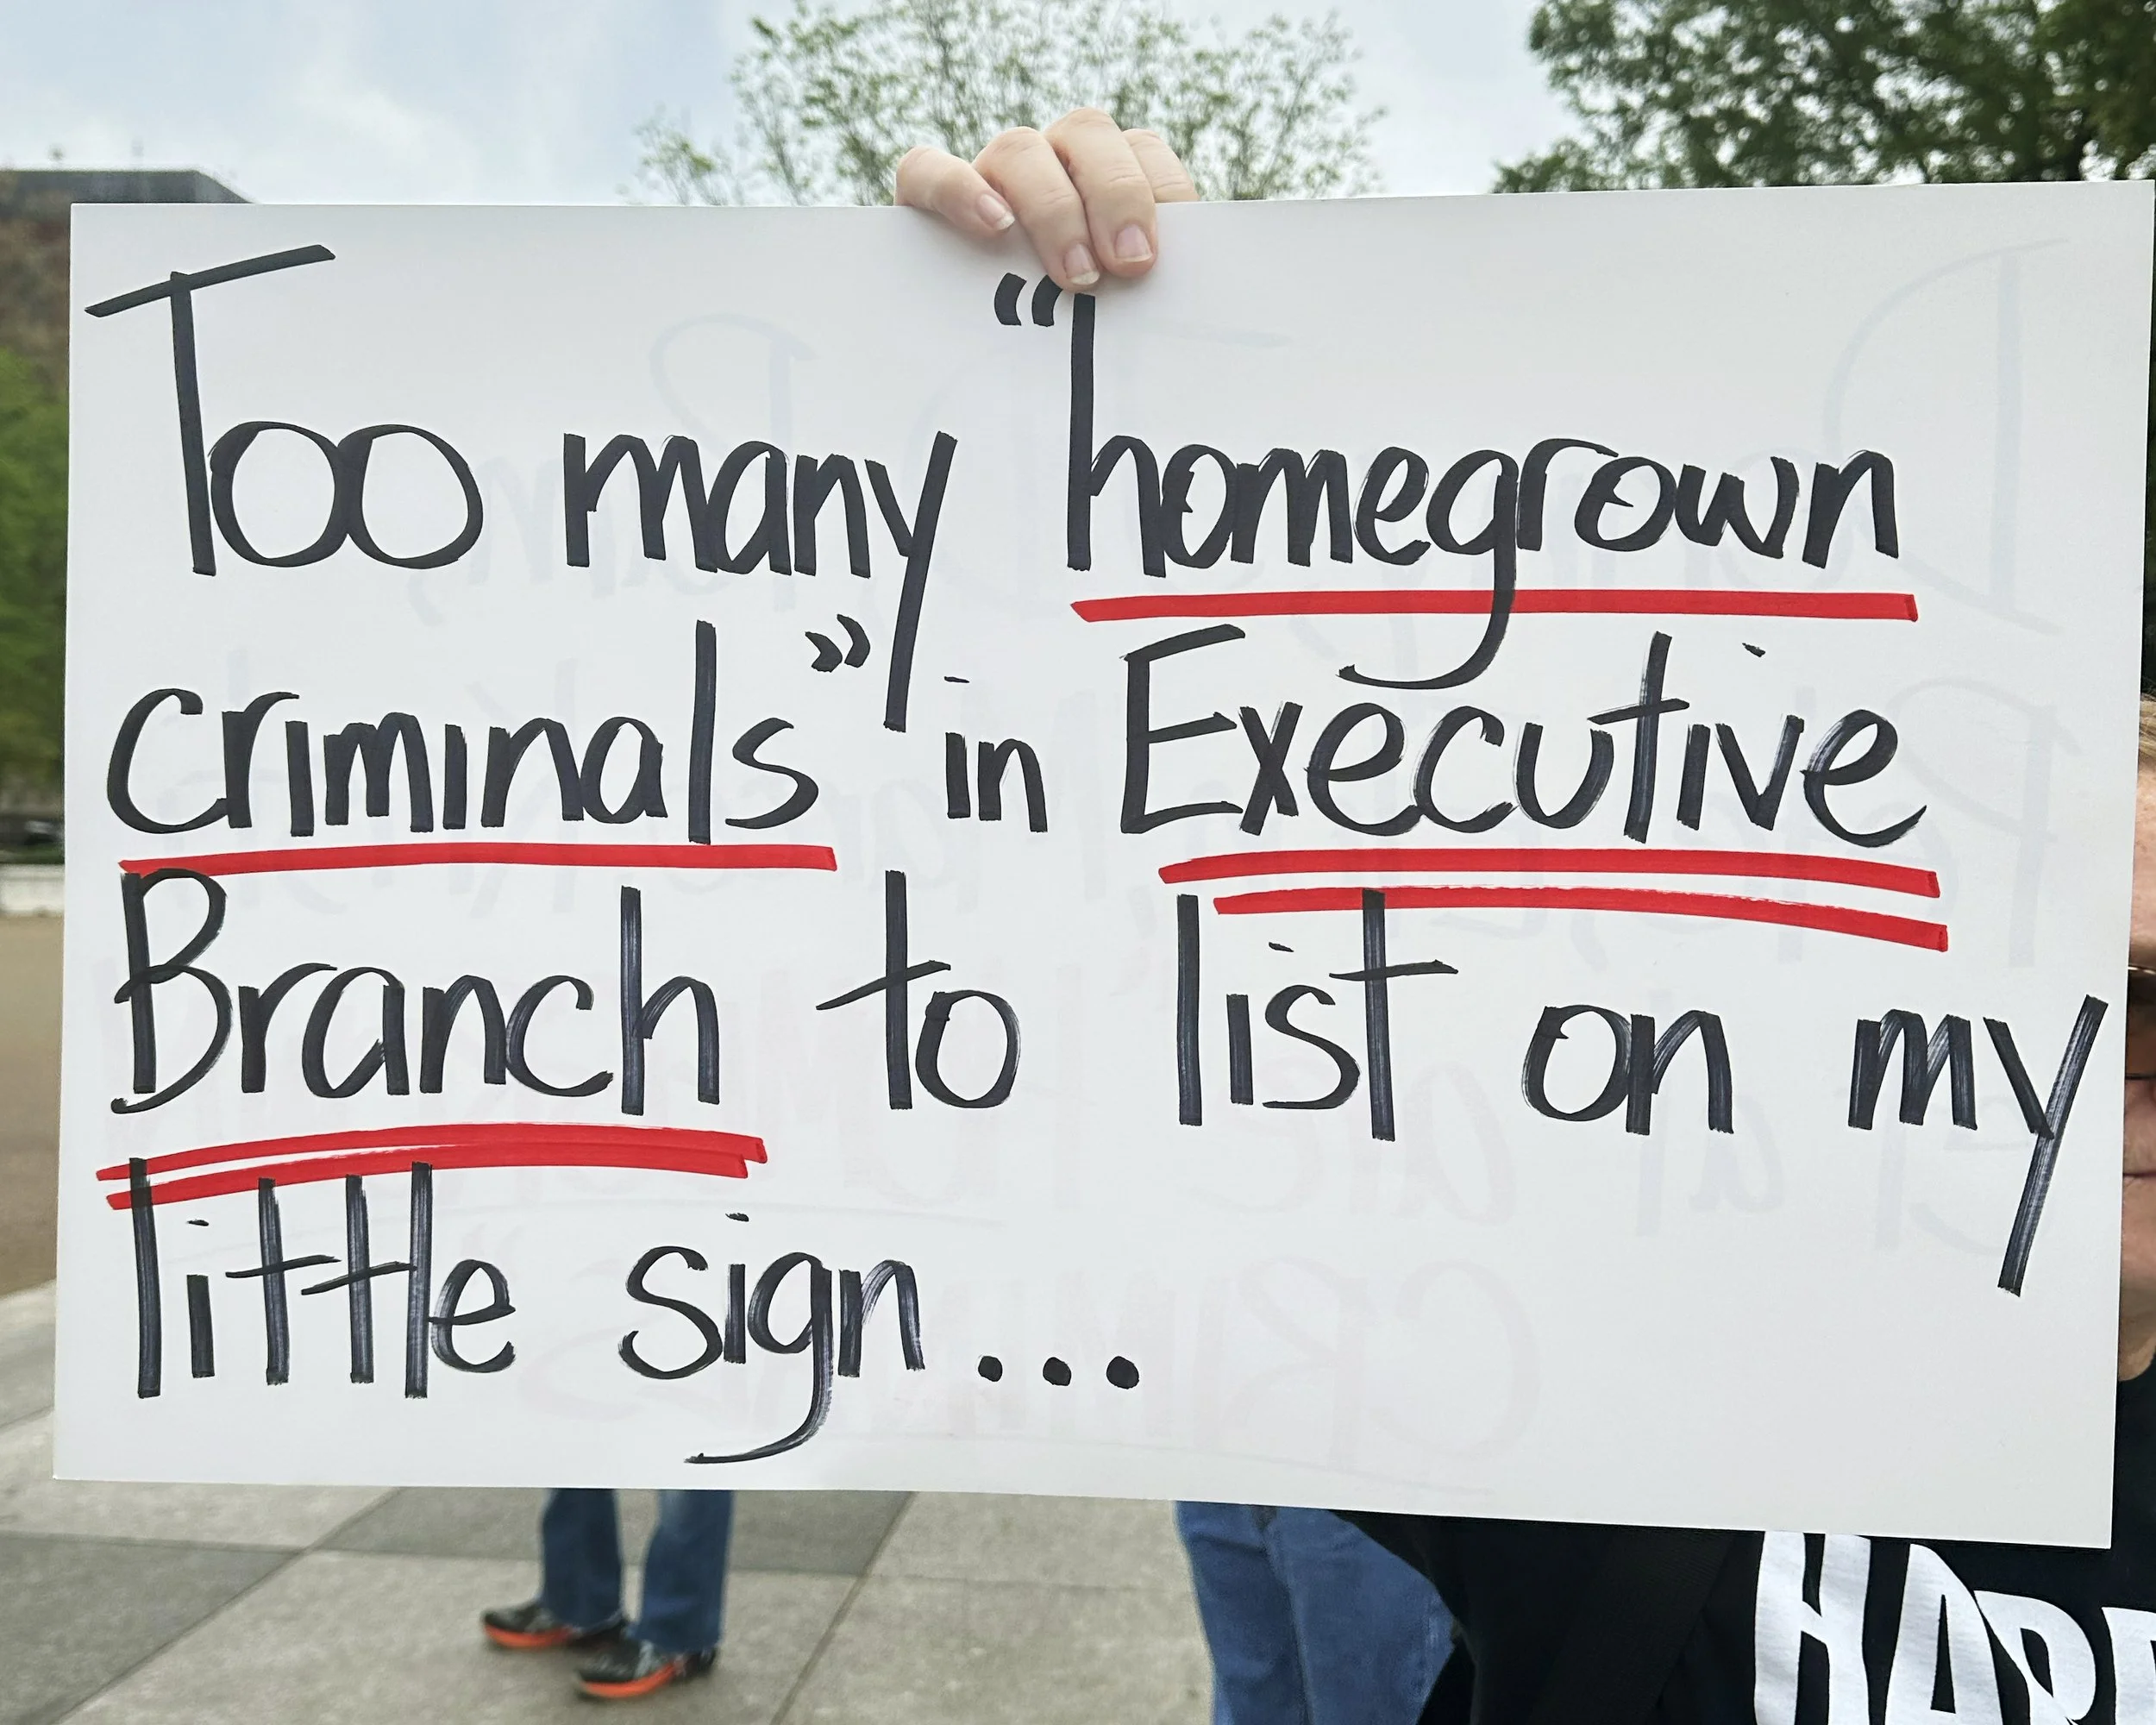 Too many "homegrown
criminals" in Executive
Branch to list on my
little sign...